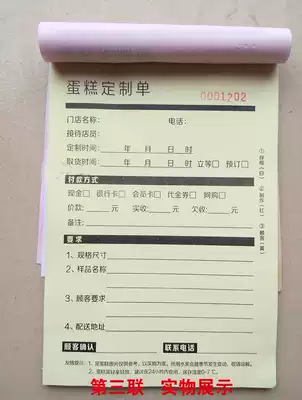 蛋糕定制单
0001202
门店名称： 电话：
接待店员：
定制时间： 年 月 日 时
取货时间： 年 月 日 时 立等□ 预订□
付款方式
现金□ 银行卡□ 会员卡□ 代金券□ 网购□
价款：____元 实收：____元 欠收：____元
备注：
要求
1、规格尺寸
2、样品名称
3、顾客要求
4、配送地址
顾客确认 联系电话
第三联 实物展示